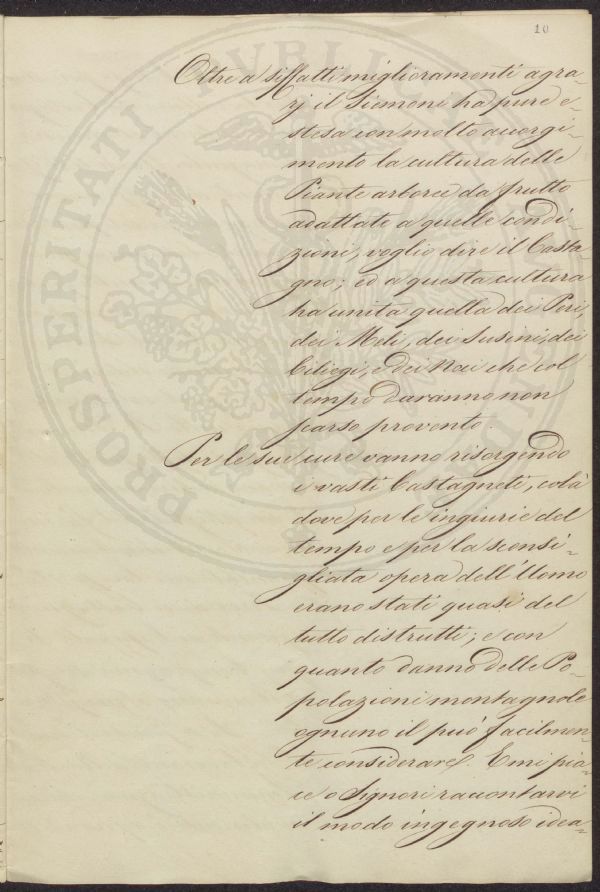 10
Oltre a siffatti miglioramenti agra-
rj il Siemoni ha pure e-
steso con molto accorgi-
mento la cultura delle
Piante arboree da frutto
adattate a quelle condi-
zioni, voglio dire il Casta-
gno; ed a questa cultura
ha unita quella dei Peri,
dei Meli, dei Susini, dei
Ciliegi, e dei Noci che col
tempo daranno non
scarso provento.
Per le sue cure vanno risorgendo
i vasti Castagneti, colà
dove per le ingiurie del
tempo e per la sconsi-
gliata opera dell'Uomo
erano stati quasi del
tutto distrutti; e con
quanto danno delle Po-
polazioni montagnole
ognuno il può facilmen-
te considerare. E mi pia-
ce o Signori raccontarvi
il modo ingegnoso idea-
PROSPERITATI PUBLICAE